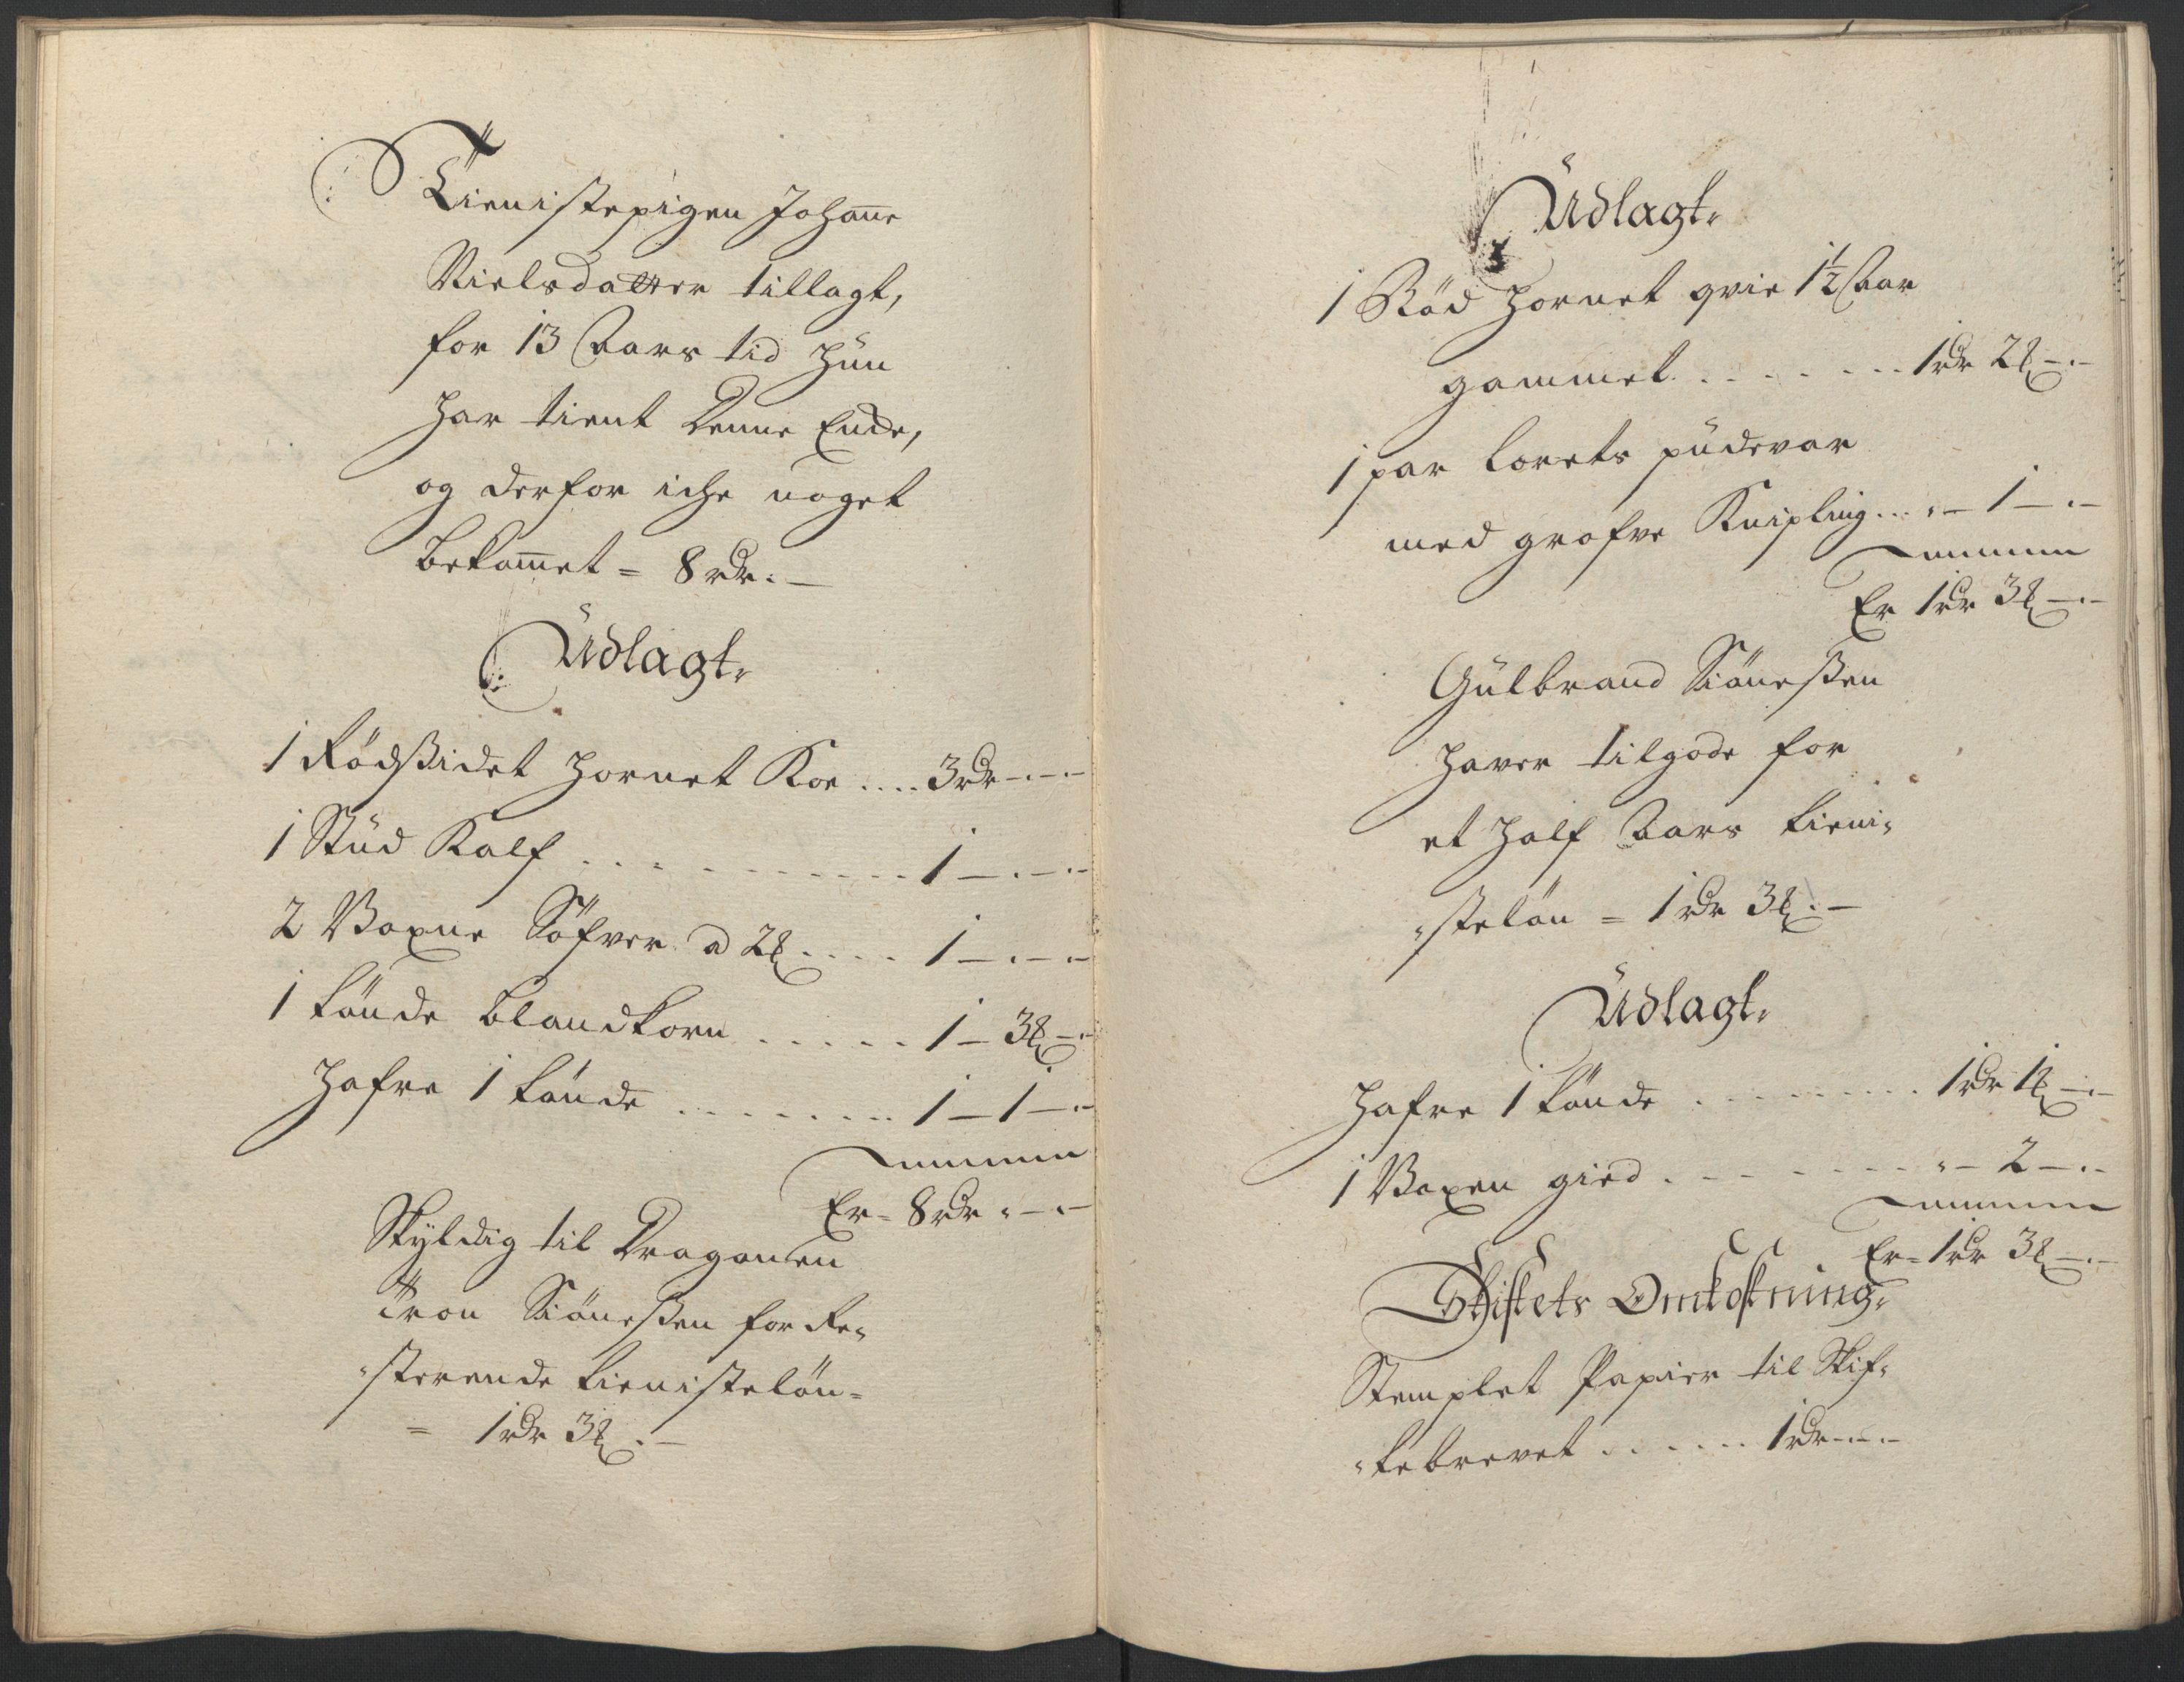 Tienistepigen Johanne
Nielsdatter tillagt,
for 13 Aars tid hun
har tient denne Ende,
og derfor iche noget
bekommet = 8 rdr. –
Udlagt.
1 Rødsidet hornet Koe .... 3 rdr - . -
1 Stud Kalf .......... 1 - . -
2 Voxne Søfver a 2 ℔ .... 1 - . -
1 tønde blandkorn ..... 1 - 3 ℔ - .
Hafre 1 tønde ....... 1 - 1 - .
Er = 8 rdr . - . -
Skyldig til Dragonen
Tron Siønesßen for Re=
=sterende tienisteløn =
= 1 rdr 3 ℔ . –
Udlagt.
1 Rød hornet qvie 1½ Aar
gammel ....... 1 rdr 2 ℔ - . -
1 par lerets pudevar
med grofve Knipling ... . - 1 - . -
Er 1 rdr 3 ℔ - . -
Gulbrand Siønesßen
haver tilgode for
et half Aars tieni=
=steløn = 1 rdr 3 ℔ . –
Udlagt.
Hafre 1 tønde ........ 1 rdr 1 ℔ - . -
1 Voxen gied ....... . - 2 - . -
Er = 1 rdr 3 ℔ - . -
Skiftets Omkostning.
Stemplet Papier til Skif=
=tebrevet ...... 1 rdr - . -